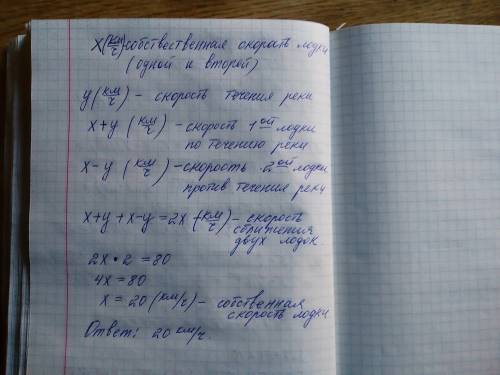 x (км/ч) собствественная скорость лодки
(одной и второй)
y (км/ч) – скорость течения реки
x+y (км/ч) – скорость 1ой лодки
по течению реки
x–y (км/ч) – скорость 2ой лодки
против течения реки
x+y+x–y=2x (км/ч) – скорость
сближения
двух лодок
2x•2=80
4x=80
x=20 (км/ч) – собственная
скорость лодки
Ответ: 20 км/ч.